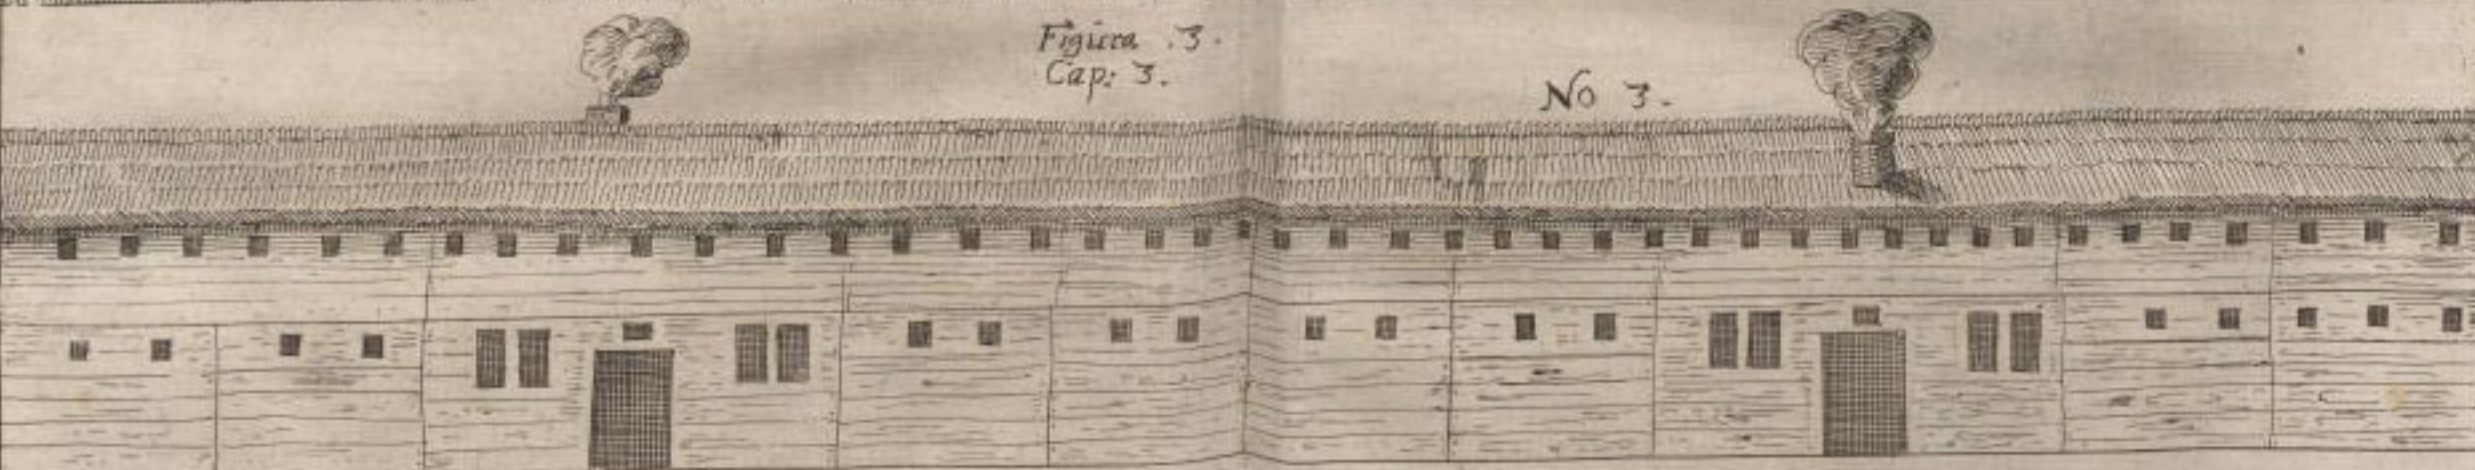 Figura .3.
Cap: 3.
No 3.